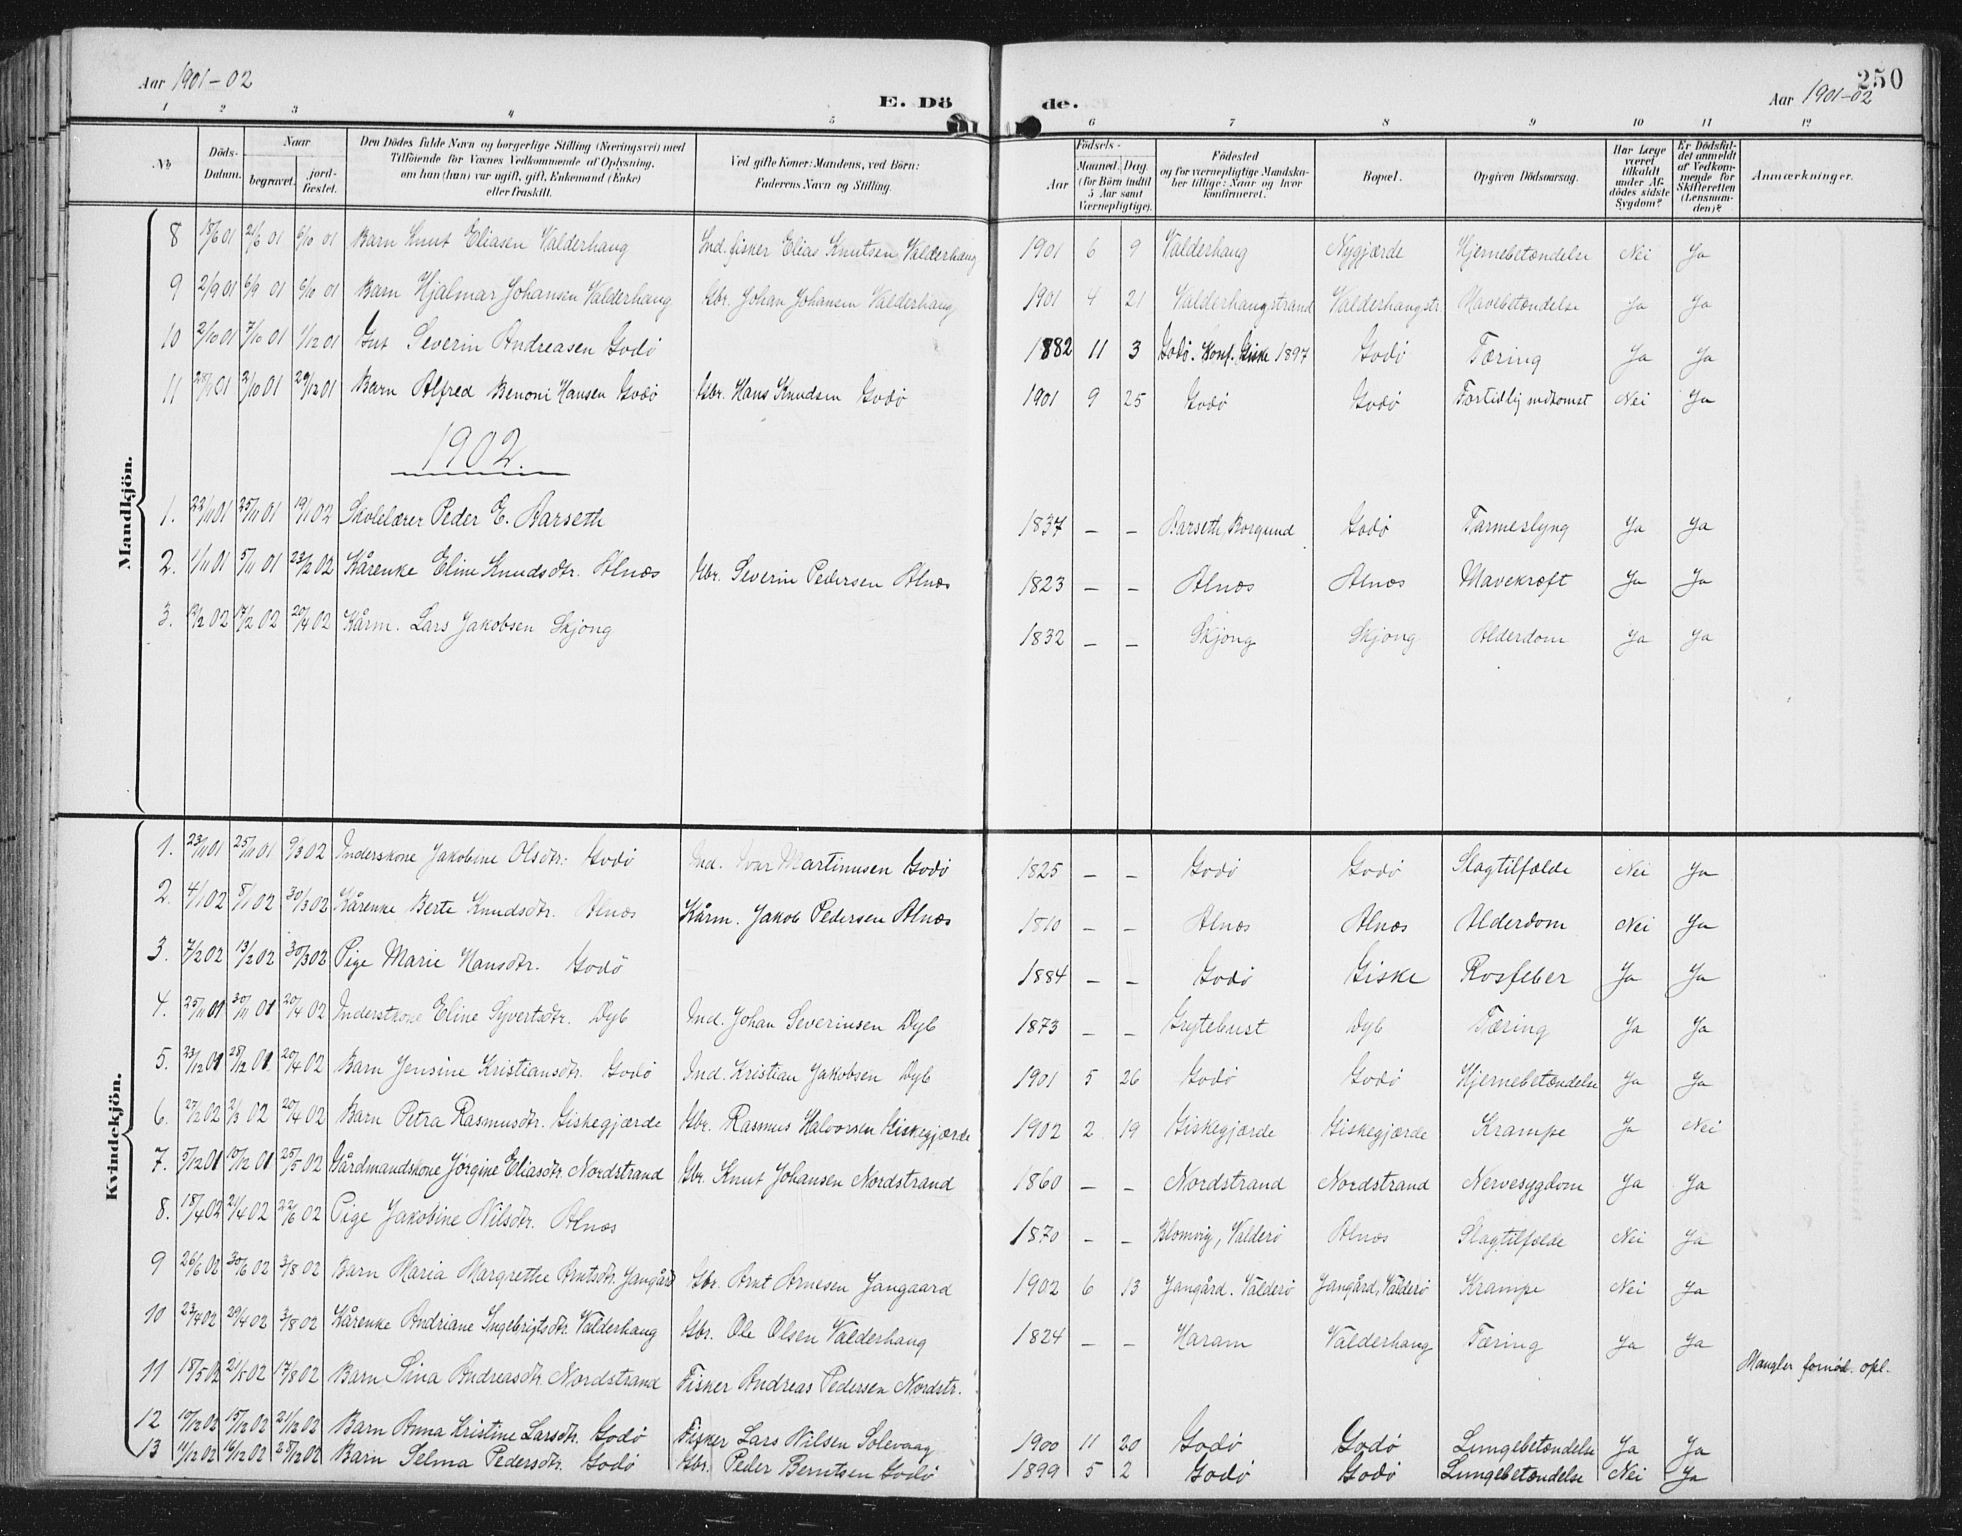 Aar 1901-02
E. Dö de.
Aar 1901-02
250
1 2 3 4 5 6 7 8 9 10 11 12
No
Döds-Datum.
Naar
begravet.
jord-fæstet.
Den Dödes fulde Navn og borgerlige Stilling (Næringsvei) med
Tilföiende for Voxnes Vedkommende af Oplysning,
om han (hun) var ugift, gift, Enkemand (Enke)
eller fraskilt.
Ved gifte Koner: Mandens, ved Börn:
Faderens Navn og Stilling.
Födsels-
Aar
Maaned. Dag.
(for Börn indtil
5 Aar samt
Værnepligtige).
Födested
og for værnepligtige Mandska-
ber tillige: Naar og hvor
konfirmeret.
Bopæl.
Opgiven Dödsaarsag.
Har Læge
været
tilkaldt
under Af-
dödes sidste
Sygdom?
Er Dödsfal-
det anmeldt
af Vedkom-
mende for
Skifteretten
(Lensman-
den)?
Anmærkninger.
Mandkjön.
8 18/6 01 21/6 01 6/10 01 Barn Knut Eliasen Valderhaug Ind. fisker Elias Knutsen Valderhaug 1901 6 9 Valderhaug Nygjærde Hjernebetændelse Nei Ja
9 2/9 01 6/9 01 6/10 01 Barn Hjalmar Johansen Valderhaug Gbr. Johan Johansen Valderhaug 1901 4 21 Valderhaugstrand Valderhaugstr. Mavebetændelse Ja Ja
10 2/10 01 7/10 01 1/12 01 Gut Severin Andreasen Godø 1882 11 3 Godø. Konf. Giske 1897 Godø Tæring Ja Ja
11 28/9 01 2/10 01 29/12 01 Barn Alfred Benoni Hansen Godø Gbr. Hans Knudsen Godø 1901 9 25 Godø Godø Fortidlig nedkomst Nei Ja
1902.
1. 22/11 01 25/11 01 19/1 02 Skolelærer Peder E. Barseth 1837 – – Barseth, Borgund Godø Tarmeslyng Ja Ja
2. 1/11 01 5/11 01 23/2 02 Kårenke Eline Knudsdtr. Alnæs Gbr. Severin Pedersen Alnæs 1823 – – Alnæs Alnæs Mavekræft Ja Ja
3. 12/2 02 17/2 02 20/4 02 Kårm. Lars Jakobsen Skjong 1832 – – Skjong Skjong Alderdom Ja Ja
Kvindekjön.
1. 23/11 01 25/11 01 9/3 02 Inderskone Jakobine Olsdtr. Godø Ind. Ivar Martinusen Godø 1825 – – Godø Godø Slagtilfælde Nei Ja
2. 4/1 02 8/1 02 30/3 02 Kårenke Berte Knudsdtr. Alnæs Kårm. Jakob Pedersen Alnæs 1810 – – Alnæs Alnæs Alderdom Nei Ja
3. 7/2 02 13/2 02 30/3 02 Pige Marie Hansdtr. Godø 1884 – – Godø Giske Rosfeber Ja Ja
4. 25/11 01 30/11 01 20/4 02 Inderstkone Eline Syvertsdtr. Dyb Ind. Johan Severinsen Dyb 1873 – – Grytebust Dyb Tæring Ja Ja
5. 23/12 01 28/12 01 20/4 02 Barn Jensine Kristiansdtr. Godø Ind. Kristian Jakobsen Dyb 1901 5 26 Godø Godø Hjernebetændelse Ja Ja
6. 27/2 02 2/3 02 20/4 02 Barn Petra Rasmusdtr. Giskegjærde Gbr. Rasmus Halvorsen Giskegjærde 1902 2 19 Giskegjærde Giskegjærde Krampe Ja Nei
7. 5/12 01 10/12 01 25/5 02 Gårdmandskone Jørgine Eliasdtr. Nordstrand Gbr. Knut Johansen Nordstrand 1860 – – Nordstrand Nordstrand Nervesygdom Ja Ja
8. 18/4 02 21/4 02 22/6 02 Pige Jakobine Nilsdtr. Alnæs 1870 – – Blomvig, Valderø Alnæs Slagtilfælde Nei Ja
9 26/6 02 30/6 02 3/8 02 Barn Maria Margrethe Arntsdtr. Jangård Gbr. Arnt Arnesen Jangaard 1902 6 13 Jangård. Valderø Jangård, Valderø Krampe Nei Ja
10 23/4 02 29/4 02 3/8 02 Kårenke Andriane Ingebrigtsdtr. Valderhaug Gbr. Ole Olsen Valderhaug 1824 – – Haram Valderhaug Tæring Ja Ja
11 18/5 02 21/5 02 17/8 02 Barn Sina Andreasdtr. Nordstrand Fisker Andreas Pedersen Nordstr. Mangler fornød. opl.
12 10/12 02 15/12 02 21/12 02 Barn Anna Kristine Larsdtr. Godø Fisker Lars Nilsen Solevaag 1900 11 20 Godø Godø Lungebetændelse Ja Ja
13 11/12 02 16/12 02 28/12 02 Barn Selma Pedersdtr. Godø Gbr. Peder Berntsen Godø 1899 5 2 Godø Godø Lungebetændelse Nei Ja